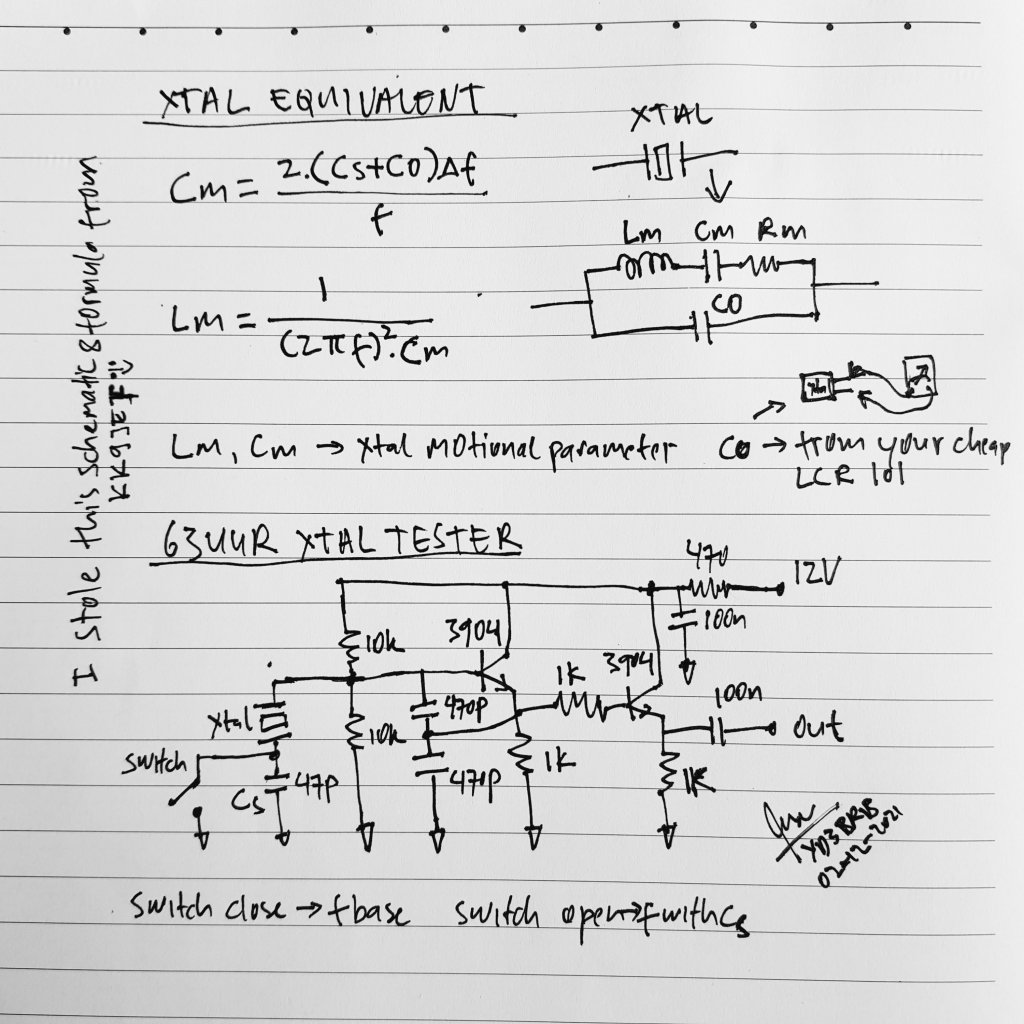 XTAL EQUIVALENT
Cm = 2.(Cs+CO)Δf
f
Lm = 1
(2πf)².Cm
XTAL
Lm Cm Rm
CO
Lm, Cm → Xtal MOtional parameter
CO → from your cheap
LCR 101
I stole this schematic & formula from
KK9JEF
63UUR XTAL TESTER
470
12V
100n
10k
3904
1K
3904
100n
Xtal
470P
out
10k
switch
1K
Cs 47P
470P
1K
YD3BRB
02-12-2021
switch close → fbase switch open → f with Cs